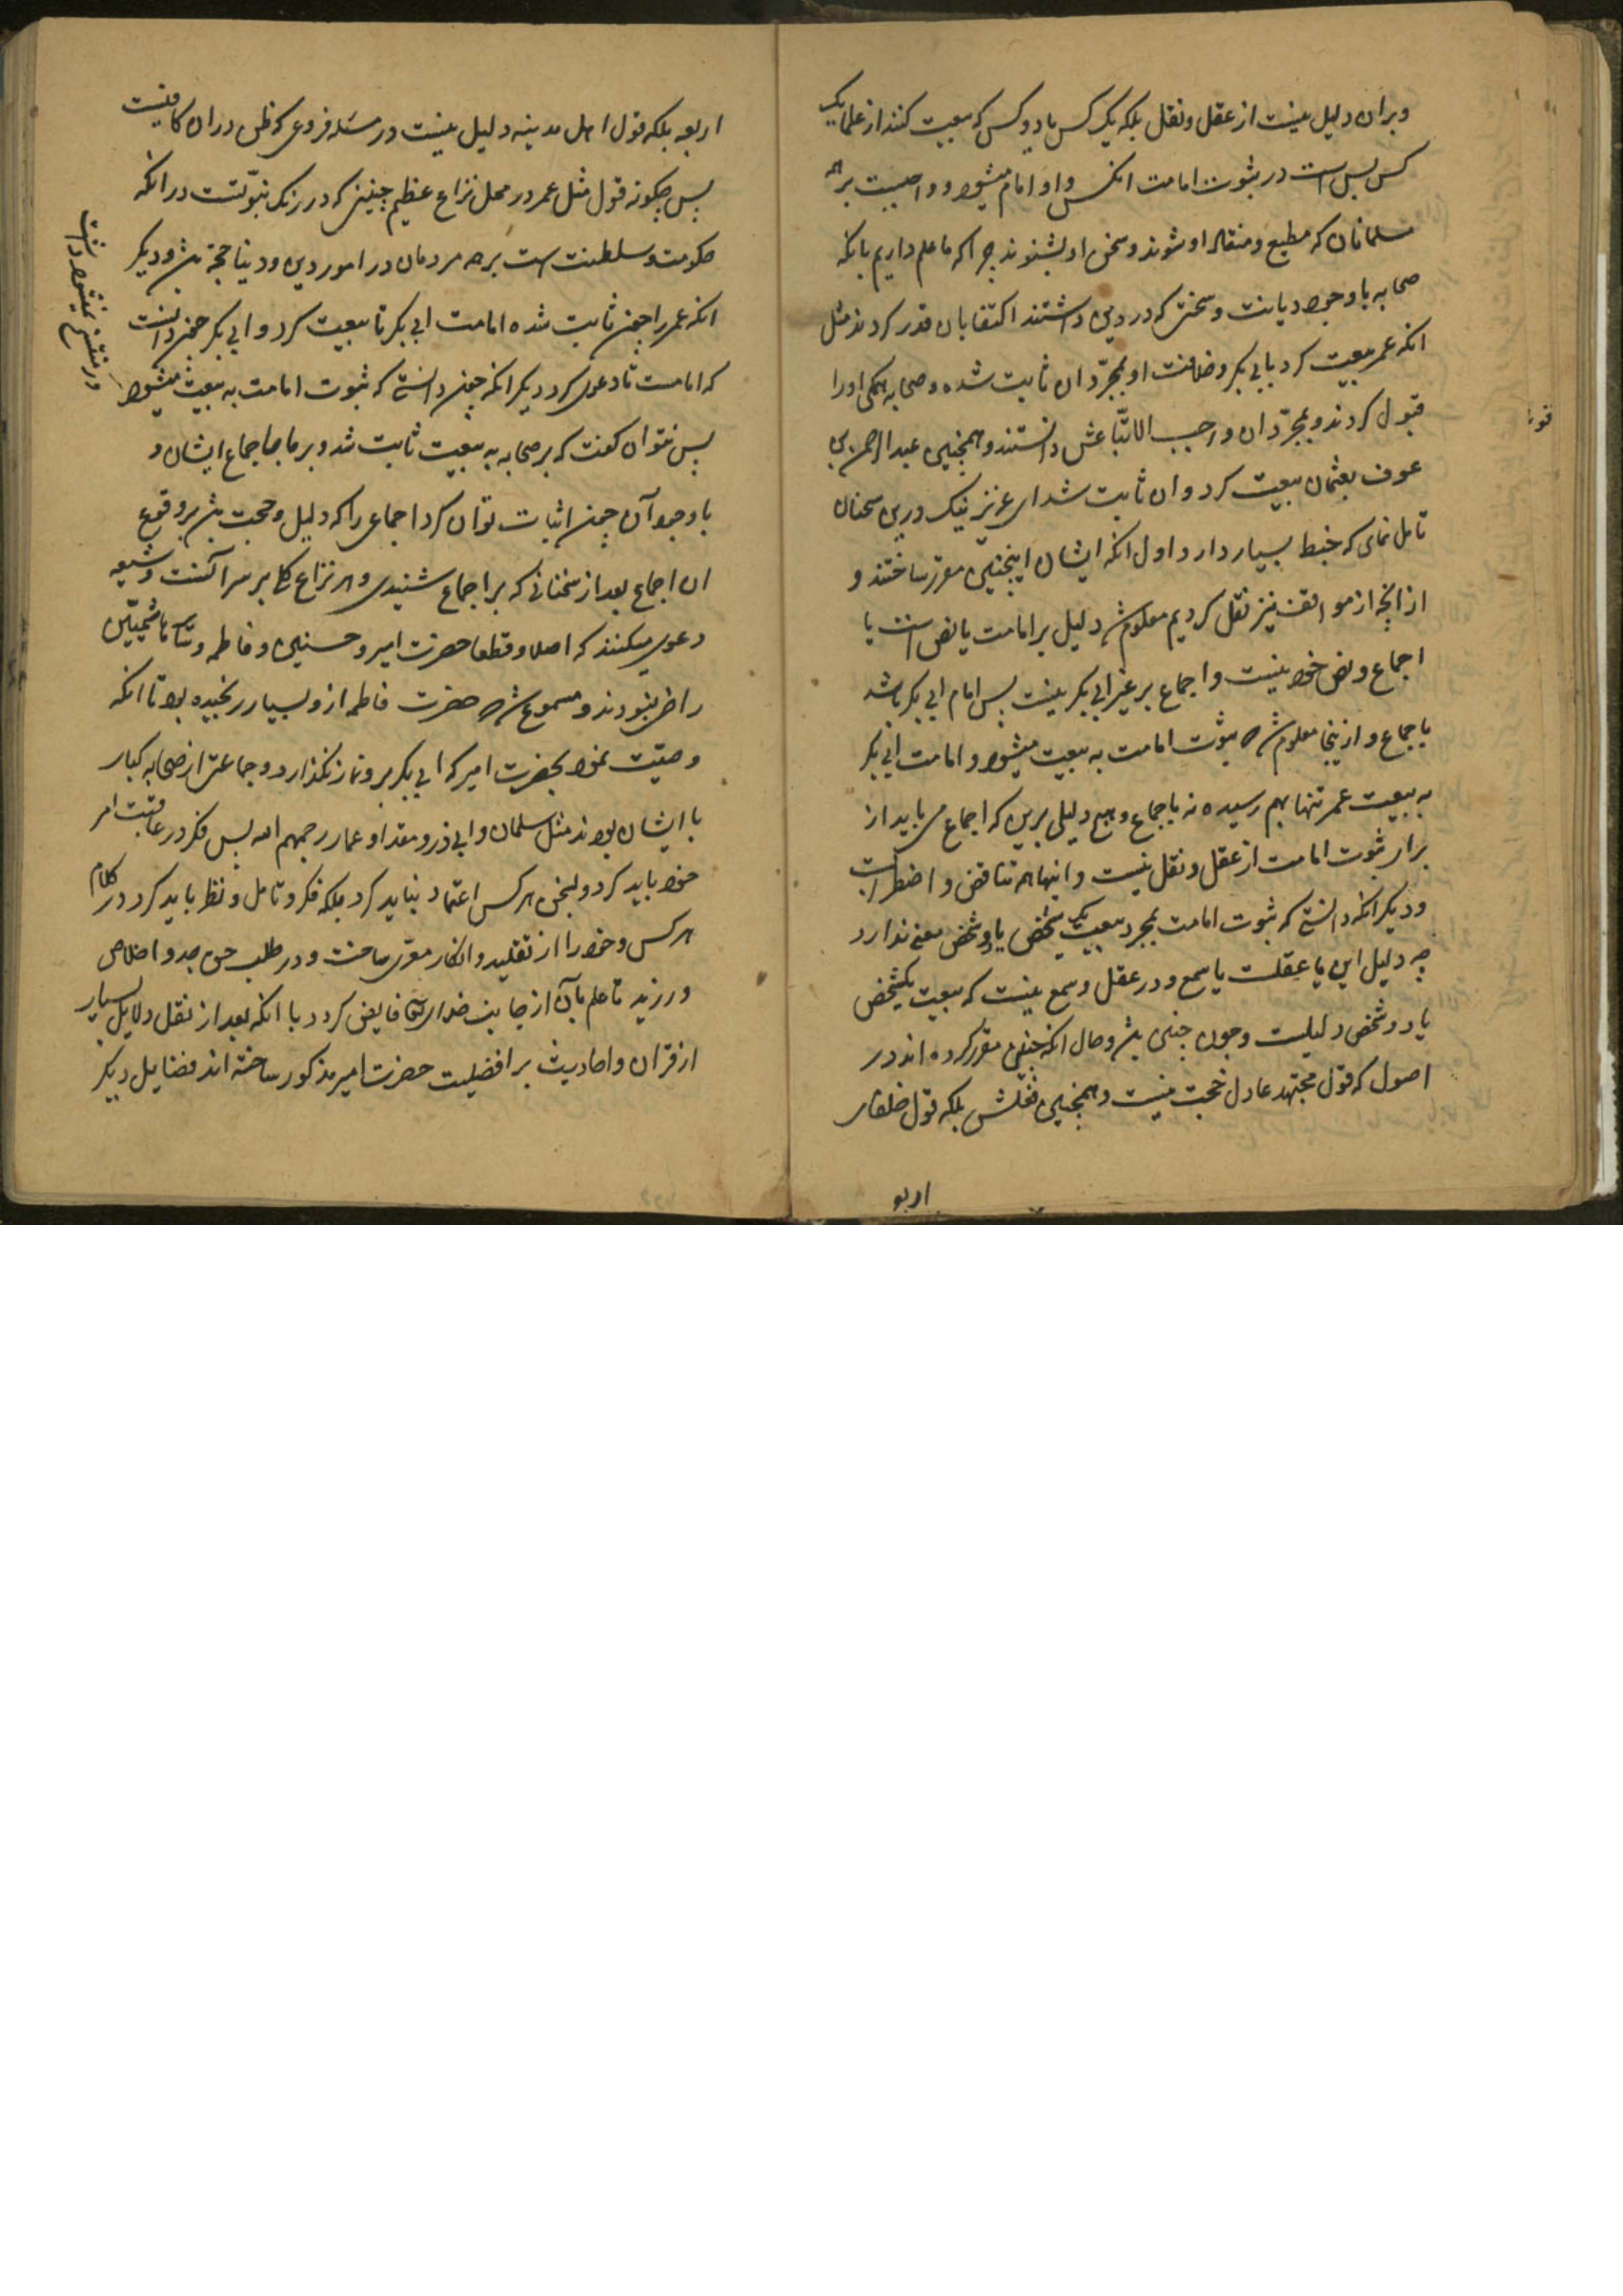 وبران دلیل نیست از عقل ونقل بلکه یک کس یا دو کس که بیعت کنند از علما یک
کس بس است در ثبوت امامت انکس واو امام میشود و واجبست بر همه
مسلمانان که مطیع ومنقاد او شوند وسخن او بشنوند چرا که ما علم داریم بانکه
صحابه با وجود دیانت وسختی که در دین داشتند اکتفا بان قدر کردند مثل
انکه عمر بیعت کرد بابی بکر وخلافت او بمجرّد ان ثابت شده وصحابه همکی اورا
قبول کردند وبمجرّد ان واجب الاتّباعش دانستند وهمچنین عبد الرحمن بن
عوف بعثمان بیعت کرد وان ثابت شد ای عزیز نیک درین سخنان
تامل نمای که خبط بسیار دارد اول انکه ایشان اینچنین مقرر ساختند و
از انچه از مواقف نیز نقل کردیم معلوم شد دلیل بر امامت یا نص است یا
اجماع ونص خود نیست واجماع بر غیر ابی بکر نیست پس امام ابی بکر باشد
باجماع و ازینجا معلوم شد که ثبوت امامت به بیعت میشود و امامت ابی بکر
به بیعت عمر تنها بهم رسیده نه باجماع وهیچ دلیلی برین که اجماع می باید از
برای ثبوت امامت از عقل ونقل نیست واینها همه تناقض و اضطرابست
ودیکر انکه دانستی که ثبوت امامت بمجرد بیعت یک شخص یا دو شخص معنی ندارد
چه دلیل این یا عقلست یا سمع ودر عقل وسمع نیست که بیعت یکشخص
یا دو شخص دلیلست وچون چنین باشد وحال انکه چنین مقرر کرده اند در
اصول که قول مجتهد عادل حجت نیست وهمچنین فعلش بلکه قول خلفای
اربعه
اربعه بلکه قول اهل مدینه دلیل نیست در مسئله فروعی که ظن دران کافیست
پس چکونه قول مثل عمر در محل نزاع عظیم چنینی که در رنک نبوّتست در انکه
حکومت وسلطنت است بر همه مردمان در امور دین ودنیا حجة باشد ودیکر
انکه عمر را چون ثابت شده امامت ابی بکر تا بیعت کرد وابی بکر چون دانست
که امامت تا دعوی کرد دیکر انکه چون دانستی که ثبوت امامت به بیعت میشود
پس نتوان کفت که بر صحابه به بیعت ثابت شد وبر ما باجماع ایشان و
با وجود آن چون اثبات توان کرد اجماعی را که دلیل وحجت باشد بر وقوع
ان اجماع بعد از سخنانی که بر اجماع شنیدی وهر نزاع کلی بر سر آنست وشیعه
دعوی میکنند که اصلا وقطعا حضرت امیر وحسنین وفاطمه وسایر هاشمیین
راضی نبودند ومسموع شد که حضرت فاطمه ازو بسیار رنجیده بود تا انکه
وصیّت نمود بحضرت امیر که ابی بکر برو نماز نکذارد وجماعتی از صحابه کبار
با ایشان بودند مثل سلمان وابی ذر ومقداد وعمار رحمهم الله پس فکر در عاقبت امر
خود باید کرد وبسخن هر کس اعتماد نباید کرد بلکه فکر وتامل ونظر باید کرد در کلام
هر کس وخود را از تقلید وانکار معرّی ساخت ودر طلب حق جد واخلاص
ورزید تا علم بآن از جانب خدای تعالی فایض کردد با انکه بعد از نقل دلایل بسیار
از قران واحادیث بر افضلیت حضرت امیر مذکور ساخته اند فضایل دیکر